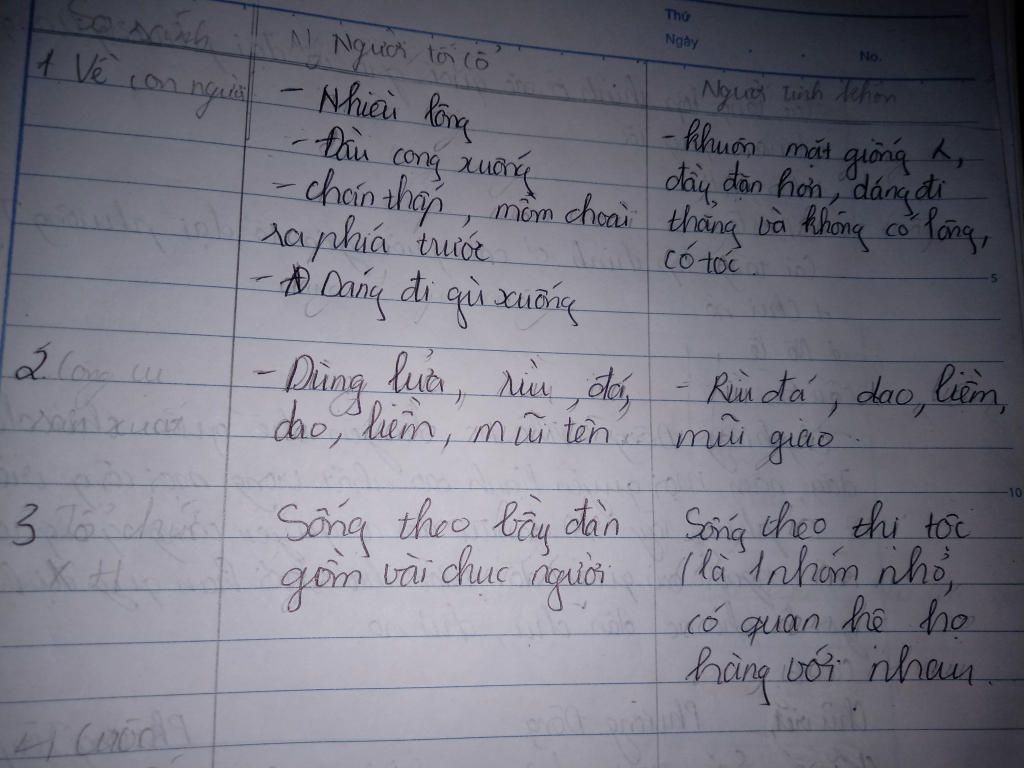 Thứ
Ngày
No.
So sánh
Người tối cổ
Người tinh khôn
1 Về con người
- Nhiều lông
- Đầu cong xuống
- chán thấp, mồm choài
ra phía trước
- Dáng đi gù xuống
- khuôn mặt giống
đầy đặn hơn, dáng đi
thẳng và không có lông,
có tóc
5
2 Công cụ
- Dùng lửa, rìu, đá,
dao, liềm, mũi tên
- Rìu đá, dao, liềm,
mũi giáo.
10
3
Sống theo bầy đàn
gồm vài chục người
Sống theo thị tộc
(là 1 nhóm nhỏ,
có quan hệ họ
hàng với nhau.